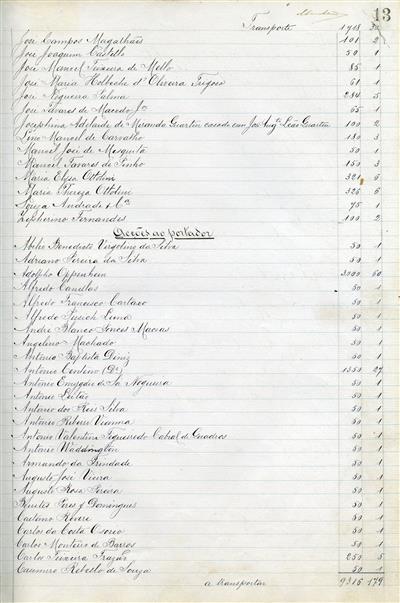 13
Transporte 1708
José Campos Magalhães 101 2
José Joaquim Castello 50 1
José Manoel Teixeira de Mello 85 1
José Maria Holbeche d'Oliveira Trigoso 61 1
José Nogueira Palma 284 5
José Tavares de Macedo Jor 65 1
Josephina Adelaide de Miranda Guartin casada com José Leão Guartin 100 2
Lino Manoel de Carvalho 180 3
Manoel José de Mesquita 50 1
Manoel Tavares de Pinho 150 3
Maria Elysa Ottolini 321 6
Maria Thereza Ottolini 326 6
Souza Andrade & Ca 75
Zepherino Fernandes 100 2
Acções ao portador
Abilio Benedicto Virgolino da Silva 50 1
Adriano Pereira da Silva 50 1
Adolpho Oppenheim 3000 60
Alfredo Canellas 50 1
Alfredo Francisco Cartaxo 50 1
Alfredo Lima 50 1
André Blanco Macias 50 1
Angelino Machado 50 1
Antonio Baptista Diniz 50 1
Antonio Centeno (Dr) 1350 27
Antonio Emygdio de Sá Nogueira 50 1
Antonio Leitão 50 1
Antonio dos Reis Silva 50 1
Antonio Ribeiro Vianna 50 1
Antonio Valentim Figueiredo Cabral de Quadros 50 1
Antonio Waddington 50 1
Armando da Trindade 50 1
Augusto José Vieira 50 1
Augusto Rosa Pereira 50 1
Benites Peres y Domingues 50 1
Caetano Revere 50 1
Carlos da Costa Osorio 50 1
Carlos Monteiro de Barros 50 1
Carlos Teixeira Frazão 250 5
Casimiro Rebello de Souza 50 1
a transportar 9316 179